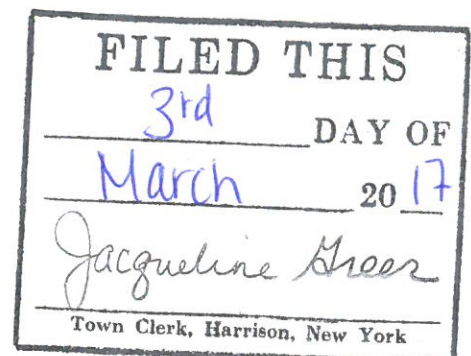 FILED THIS
3rd DAY OF
March 2017
Jacqueline Greer
Town Clerk, Harrison, New York